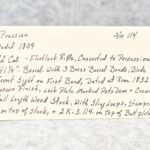 Prussian S/n 114
Model 1809
.72 Cal - Flintlock Rifle, Converted to Percussion
41¼" Barrel With 3 Brass Barrel Bands, Blade
Front Sight on First Band, Dated at Rear 1832
Brown Finish, Lock Plate Marked Potsdam + Crown
Full Length Wood Stock, With Sling Loops, Stamped
on Top of Stock, + 2.K.3.114. on Top of Butt plate